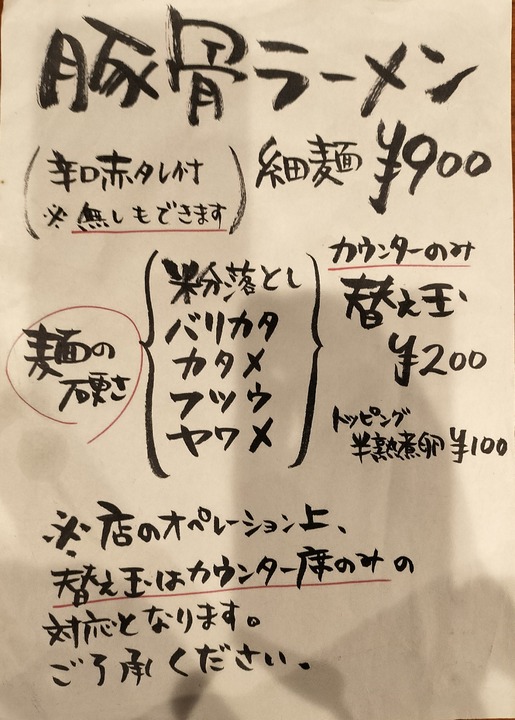 豚骨ラーメン
(辛口赤タレ付
※無しもできます)
細麺 ¥900
麺の
硬さ
粉落とし
バリカタ
カタメ
フツウ
ヤワメ
カウンターのみ
替え玉
¥200
トッピング
半熟煮卵 ¥100
※店のオペレーション上、
替え玉はカウンター席のみの
対応となります。
ご了承ください。